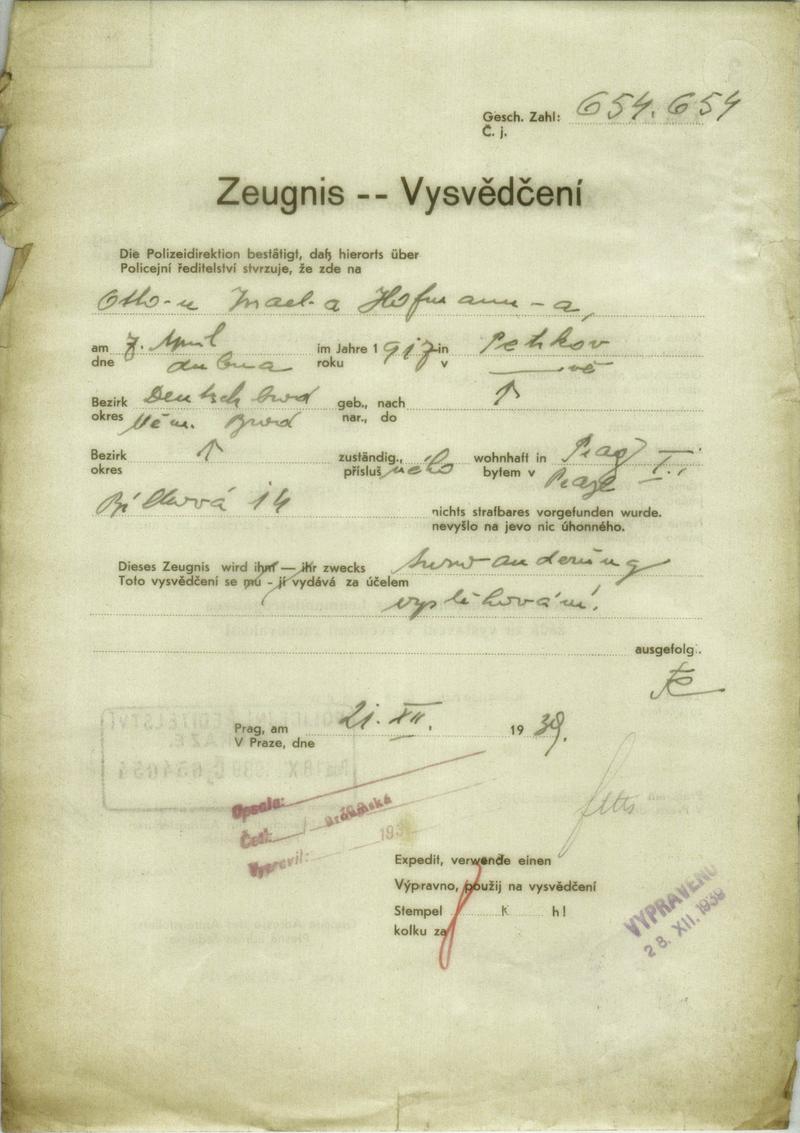 Gesch. Zahl: 654.654
Č. j.
Zeugnis -- Vysvědčení
Die Polizeidirektion bestätigt, daß hierorts über
Policejní ředitelství stvrzuje, že zde na
Otto-u Israel-a Hofmann-a,
am 7. April im Jahre 1917 in Petrkov
dne dubna roku v —vě
Bezirk Deutschbrod geb., nach ↑
okres Něm. Brod nar., do
Bezirk ↑ zuständig., wohnhaft in Prag I.,
okres přísluš ného bytem v Praze
Bílkova 14 nichts strafbares vorgefunden wurde.
nevyšlo na jevo nic úhonného.
Dieses Zeugnis wird ihm — ihr zwecks Auswanderung
Toto vysvědčení se mu - jí vydává za účelem
vystěhování.
ausgefolg.
Prag, am 21. XII. 1939.
V Praze, dne
Opsala:
Četl:
Vypravil: 193
Expedit, verwende einen
Výpravno, použij na vysvědčení
Stempel K h!
kolku za
VYPRAVENO
28. XII. 1939